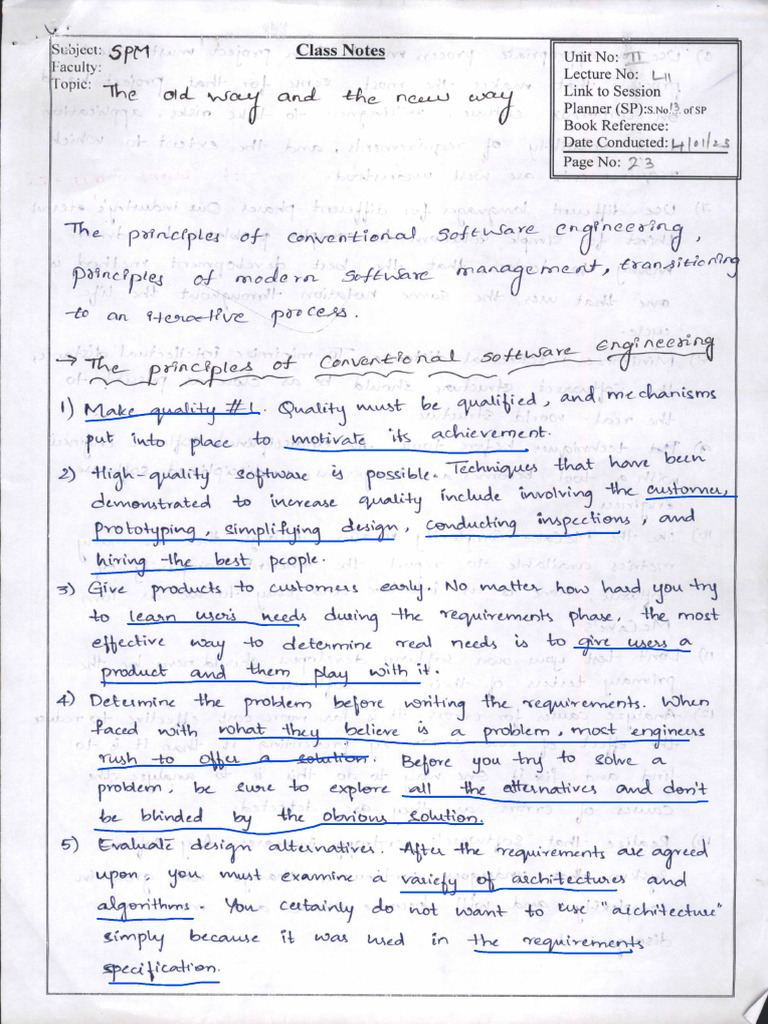 Class Notes
Subject: SPM
Faculty:
Topic: The old way and the new way
Unit No: II
Lecture No: L11
Link to Session
Planner (SP):S.No 13 of SP
Book Reference:
Date Conducted: 4/01/23
Page No: 23
The principles of conventional software engineering,
principles of modern software management, transitioning
to an iterative process.
→ The principles of Conventional software Engineering
1) Make quality #1. Quality must be qualified, and mechanisms
put into place to motivate its achievement.
2) High-quality software is possible. Techniques that have been
demonstrated to increase quality include involving the customer,
Prototyping, simplifying design, conducting inspections, and
hiring the best people.
3) Give products to customers early. No matter how hard you try
to learn users needs during the requirements phase, the most
effective way to determine real needs is to give users a
product and them play with it.
4) Determine the problem before writing the requirements. When
faced with what they believe is a problem, most engineers
rush to offer a solution. Before you try to solve a
problem, be sure to explore all the alternatives and don't
be blinded by the obvious solution.
5) Evaluate design alternatives. After the requirements are agreed
upon, you must examine a variety of architectures and
algorithms. You certainly do not want to use "architecture"
simply because it was used in the requirements
specification.